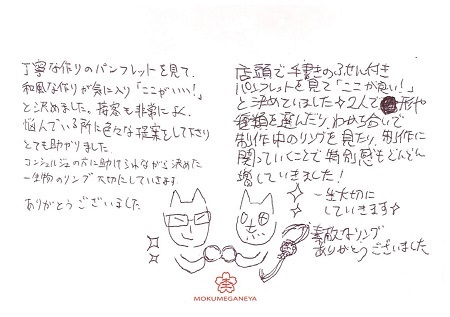 丁寧な作りのパンフレットを見て、
和風な作りが気に入り「ここがいい!」
と決めました。接客も非常に良く、
悩んでいる所に色々な提案もして下さり
とても助かりました。
コンシェルジュの方に助けられながら決めた
一生物のリング大切にしていきます
ありがとうございました
店頭で手書きのふせん付き
パンフレットを見て「ここが良い!」
と決めていました☆2人で形や
種類を選んだり、わめち合いで
制作中のリングを見たり、制作に
関っていくことで特別感もどんどん
増していきました!
一生大切に
していきます☆
素敵なリング
ありがとうございました
MOKUMEGANEYA